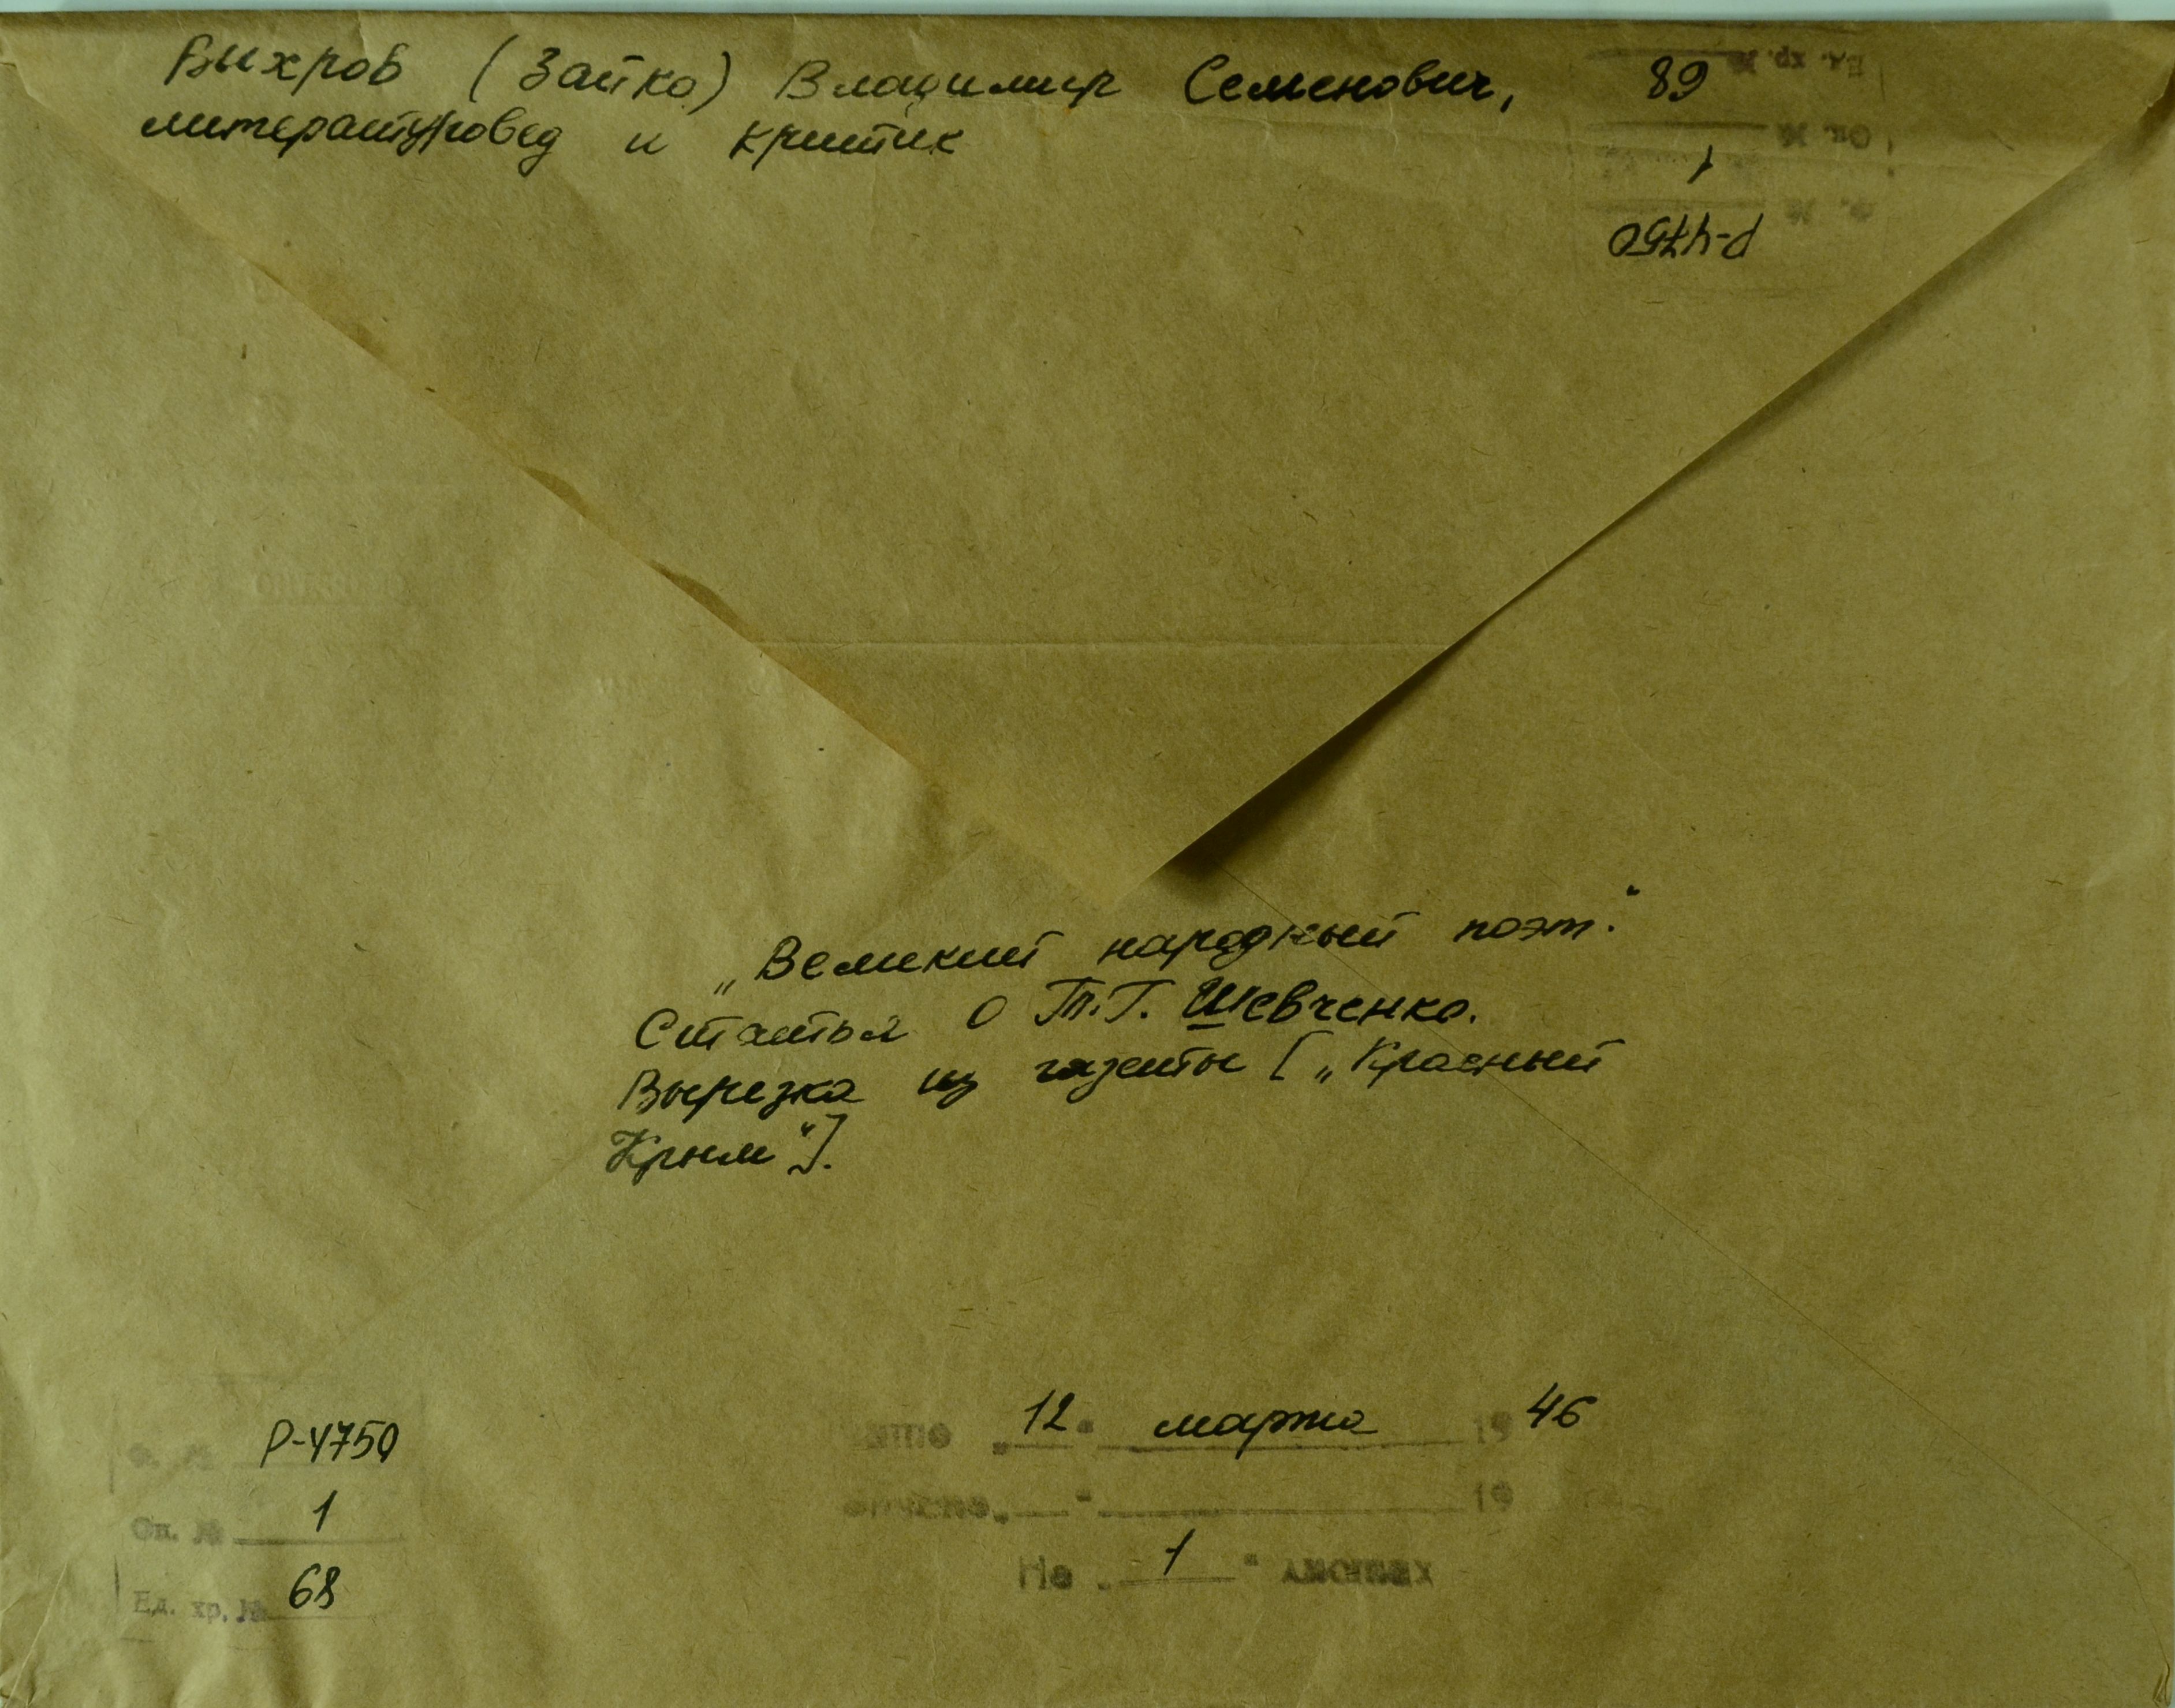 Выхров (Зайко) Владимир Семенович,
литературовед и критик
Ед. хр. № 68
Оп. № 1
Ф. № Р-4750
„Великий народный поэт."
Статья о Т.Г. Шевченко.
Вырезка из газеты [„Красный
Крым"].
Р-4750
Оп. № 1
Ед. хр. № 68
„12" марта 19 46
„ " 19
На „1" листах